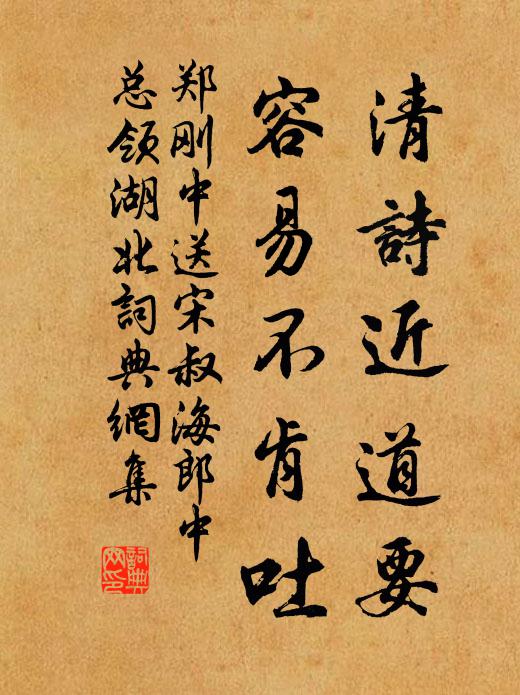 清詩近道要
容易不肯吐
郑刚中送宋叔海郎中
总领湖北詞典網集
詞典網印